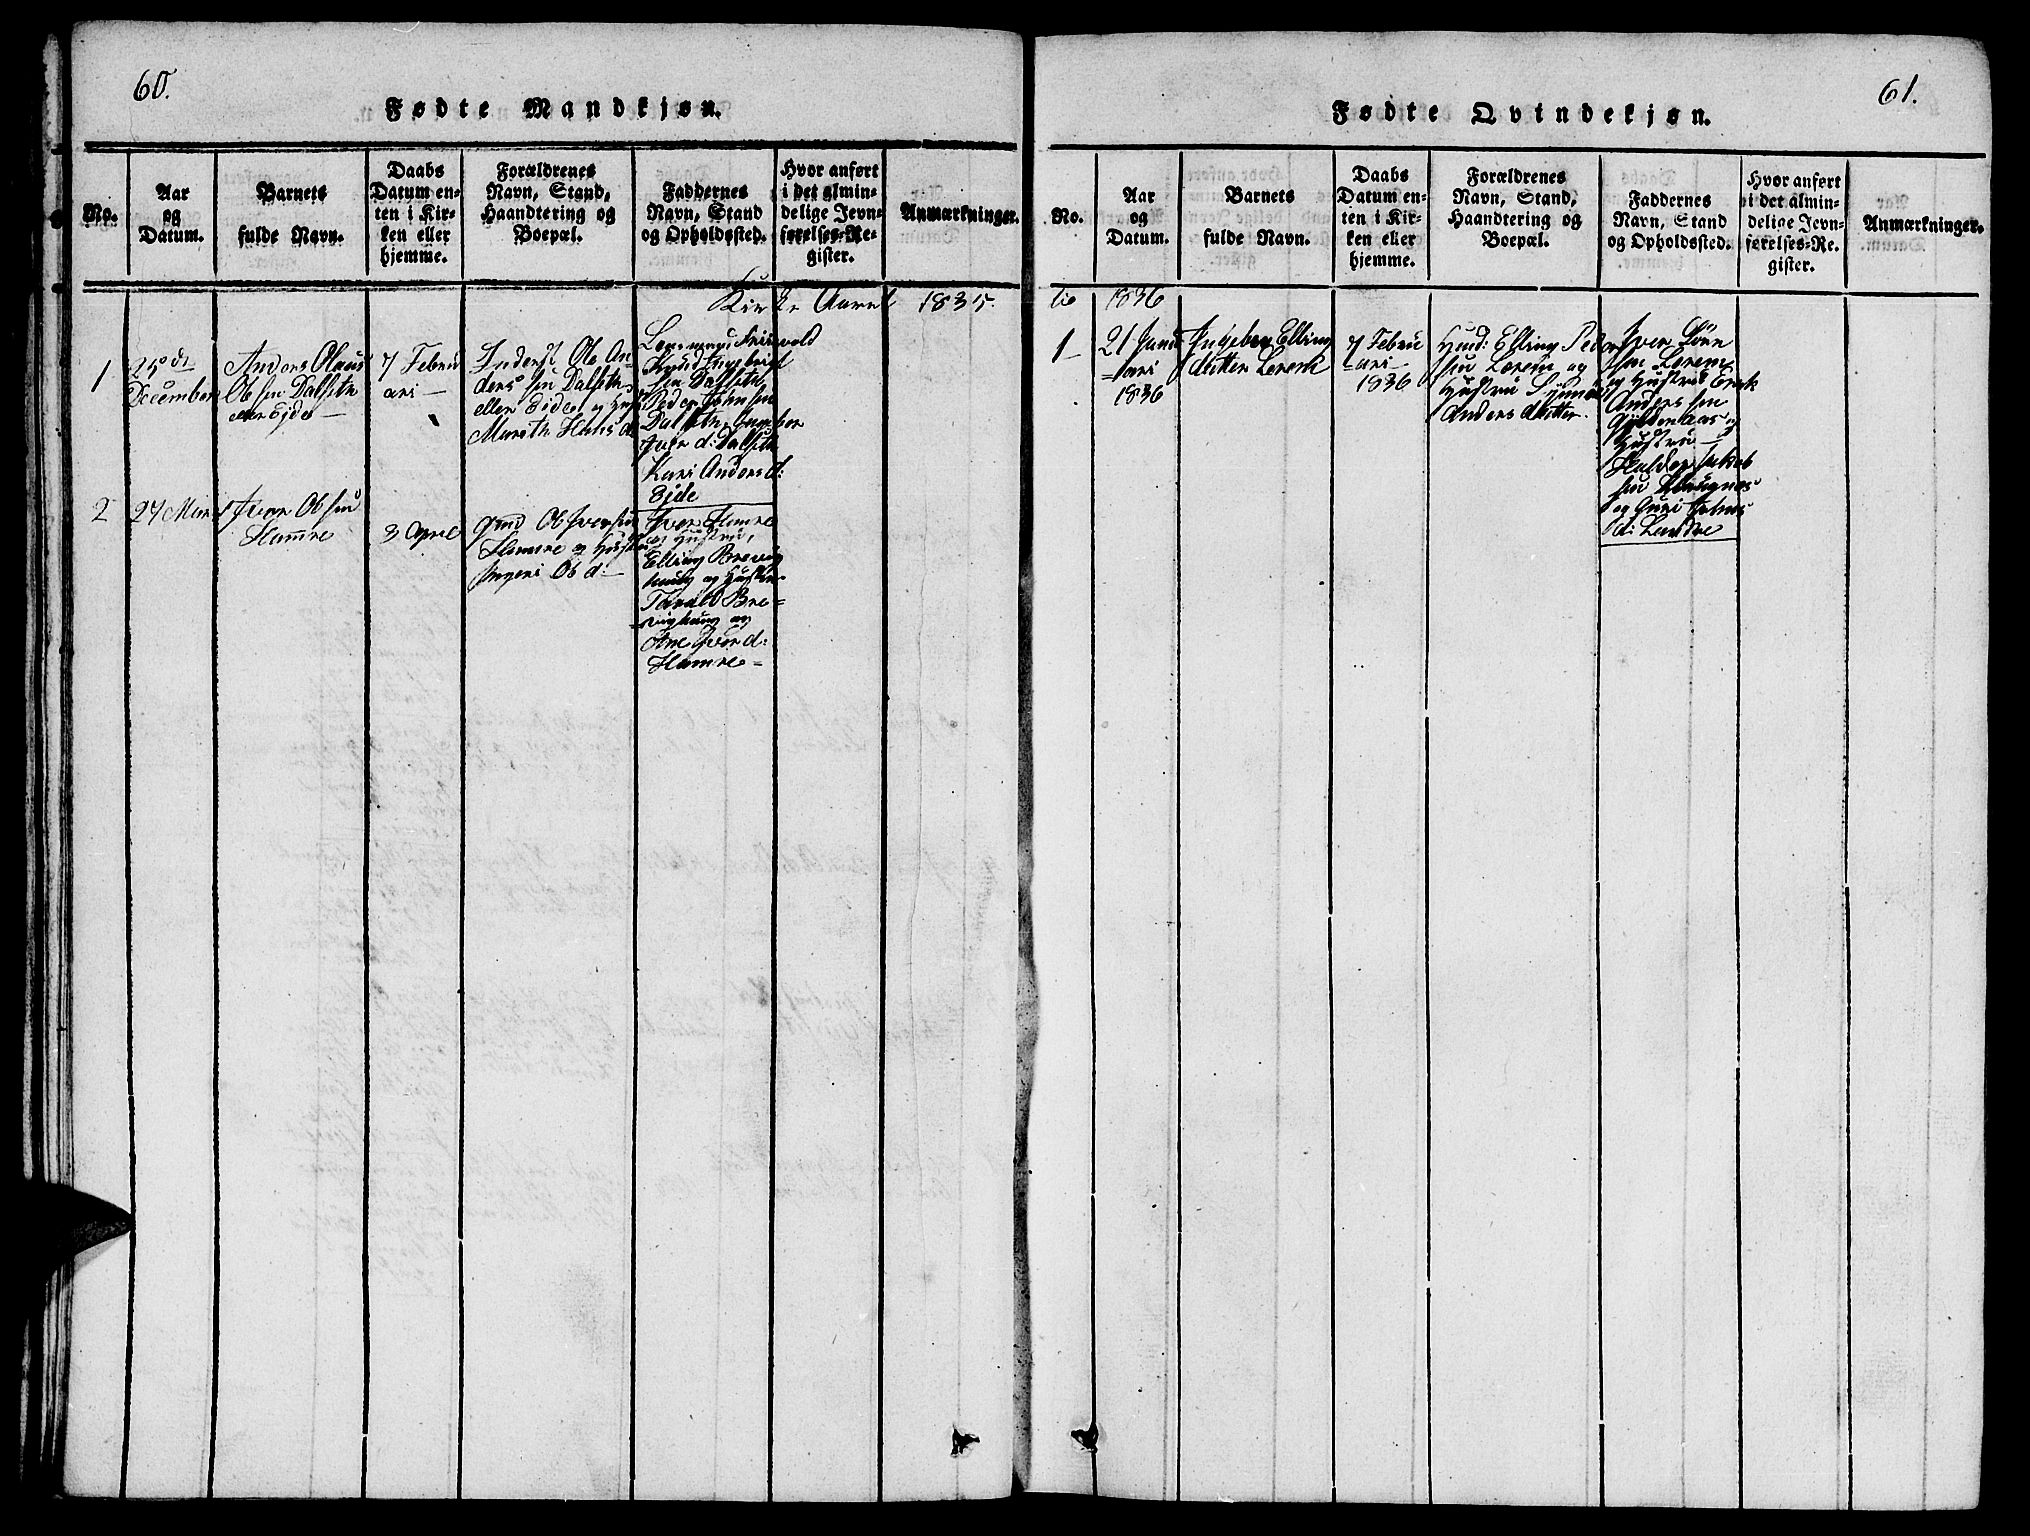 60.
Fødte Mandkjøn.
No.
Aar
og
Datum.
Barnets
fulde Navn.
Daabs
Datum en-
ten i Kir-
ken eller
hjemme.
Forældrenes
Navn, Stand,
Haandtering og
Boepæl.
Faddernes
Navn, Stand
og Opholdssted.
Hvor anført
i det almin-
delige Jevn-
førelses-Re-
gister.
Anmærkninger.
Kirke Aaret 1835.
1
25de
December
Anders Olaus
Ols sen Dalseth
eller Eide
7 Febru
ari
Inderst Ole An-
ders sen Dalseth
eller Eide og Hust
Mareth Hans d
Knud Engebrigt
sen Dalseth
Peder John sen
Dalseth, Ingebor
Iver d: Dalseth
Kari Anders d:
Eide
2
27 Mar
Iver Ols sen
Hamre
3 April
Gmd Ols Iversen
Hamre og Hustru
Ingeri Ols d:
Iver Hamre
og Hustru,
Elling Brevig
haug og Hustru
Tarald Bre-
vighaug og
Ane Iver d:
Hamre
61.
Fødte Qvindekjøn.
No.
Aar
og
Datum.
Barnets
fulde Navn.
Daabs
Datum en-
ten i Kir-
ken eller
hjemme.
Forældrenes
Navn, Stand,
Haandtering og
Boepæl.
Faddernes
Navn, Stand
og Opholdssted.
Hvor anført
i det almin-
delige Jevn-
førelses-Re.
gister.
Anmærkninger.
1836
1
21 Janu
ari
1836
Ingebor Elling
datter Lerem
7 Febru
ari
1836
Huusd: Elling Peder
sen Lerem og
Hustru Synnøv
Anders datter.
Iver Jørn
sen Lerem
og Hustru Erik
Anders sen
Gyldenaas og
Hustru
Haldor Jakob
sen
og Guri
d: